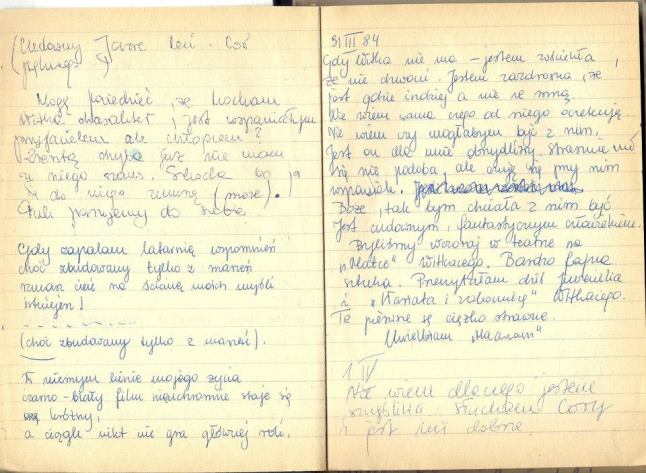 (Cudowny Jazz Leci. Coś
pięknego)
Mogę powiedzieć, że kocham
Witka charakter, jest wspaniałym
przyjacielem ale chłopcem?
Zresztą chyba już nie mam
u niego szans. Szkoda bo ja
do niego (może).
do siebie
Gdy zapalam latarnię wspomnień
choć zbudowany tylko z marzeń
rzucasz cień na ścianę moich myśli
istniejesz!
(choć zbudowany tylko z marzeń).
W niemym kinie mojego życia
czarno-biały film nieuchronnie staje się
krótszy,
a ciągle nikt nie gra głównej roli.
31 III 84
Gdy Witka nie ma - jestem wściekła,
że nie dzwoni. Jestem zazdrosna, że
jest gdzie indziej a nie ze mną.
Nie wiem sama czego od niego oczekuję.
Nie wiem czy mogłabym być z nim.
Jest on dla mnie Strasznie mi
się nie podoba, ale czuję się przy nim
wspaniale.
Boże, tak bym chciała z nim być
Jest cudownym, fantastycznym człowiekiem.
Byliśmy wczoraj w teatrze na
"Matce" Witkacego. Bardzo fajna
sztuka. Przeczytałam dziś
i "Wariata i zakonnicę" Witkacego.
Te są ciężko strawne.
Uwielbiam "Maanam".
1 IV
Nie wiem dlaczego jestem
szczęśliwa. Słucham
i jest mi dobrze.